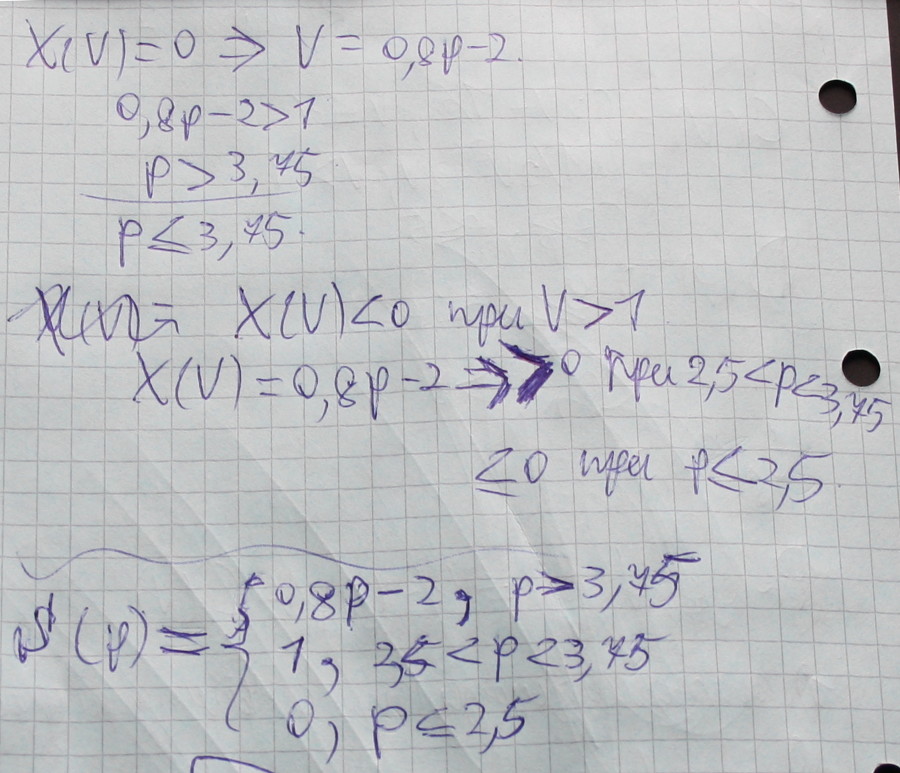 X(V)=0 ⇒ V = 0,8p-2.
0,8p-2>1
p > 3,75
p ≤ 3,75.
X(V)= X(V)<0 при V>1
X(V) = 0,8p-2 ⇒ > 0 при 2,5<p≤3,75
≤0 при p≤2,5.
(p) = { 0,8p-2, p>3,75
1, 2,5<p≤3,75
0, p≤2,5